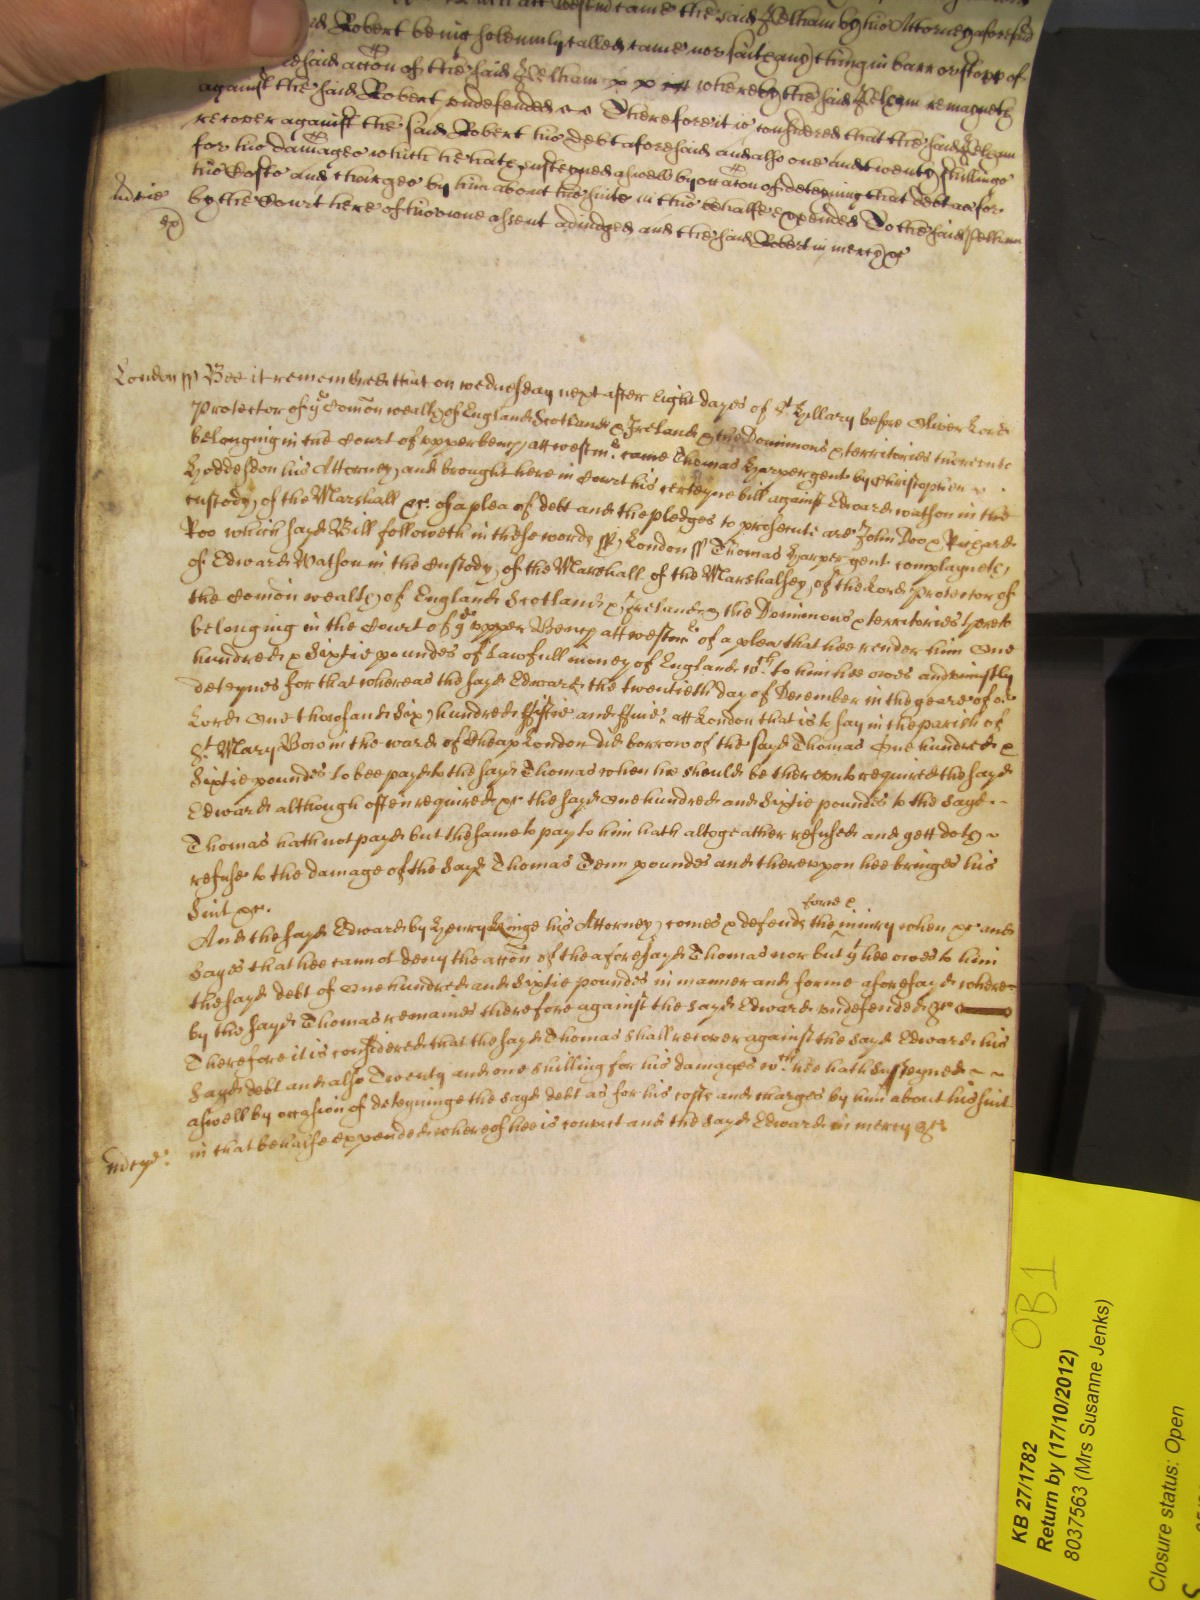 att Westm came the said Pelham by his Attorney aforesaid
Robert being solemnly called came nor saith any thing in barr or stopp of
said accon of the said Pelham whereby the said Pelham remayneth
against the said Robert undefended Therefore it is considered that the said Pelham
recover against the said Robert his debt aforesaid and also one and twenty shillings
for his damages which he hath susteyned aswell by occacon of deteyning that debt as for
his Costs and charges by him about his suite in this behalfe expended To the said Pelham
by the Court here of his owne assent adiudged and the said Robert in mercy &c
London ss Bee it remembred that on wednesday next after Eight dayes of St Hillary before Oliver Lord
Protector of ye Comon wealth of England Scotland & Ireland & the Dominions & territories thereunto
belonging in the Court of upper bench att westmr came Thomas Harper gent by Christopher
Hoddesdon his Attorney and brought here in Court his certeyne bill against Edward watson in the
custody of the Marshall &c. of a plea of debt and the pledges to prosecute are John Doo & Richard
Roo which sayd Bill followeth in these words ss London ss Thomas Harper gent complayneth
of Edward Watson in the Custody of the Marshall of the Marshalsey of the Lord Protector of
the Comon wealth of England Scotland & Ireland & the Dominions & territories thereto
belonging in the Court of ye upper Bench att westmr of a plea that hee render him One
hundred & Sixtie poundes of Lawfull money of England wch to him hee owes and uniustly
deteynes for that whereas the sayd Edward the twentieth day of December in the yeare of or
Lord One thowsand Six hundred ffiftie and ffive att London that is to say in the parish of
St Mary Bow in the ward of Cheap London did borrow of the sayd Thomas One hundred &
Sixtie poundes to bee payd to the sayd Thomas when hee should be thereunto required the sayd
Edward although often required &c the sayd One hundred and Sixtie poundes to the sayd
Thomas hath not payd but the same to pay to him hath altogeather refused and yett doth
refuse to the damage of the Sayd Thomas Tenn poundes and thereuppon hee bringes his
Suit &c.
And the sayd Edward by Henry Kinge his Attorney comes & defends the force & iniury when &c and
Sayes that hee cannot deny the accon of the aforesayd Thomas nor but yt hee owes to him
the sayd debt of One hundred and Sixtie poundes in manner and forme aforesayd where=
by the sayd Thomas remaines therefore against the Sayd Edward undefended &c
Therefore it is considered that the sayd Thomas shall recover against the sayd Edward his
Sayd debt and also Twenty and one shilling for his damages wch hee hath Susteyned
aswell by occasion of deteyninge the sayd debt as for his costs and charges by him about his suit
in that behalfe expended whereof hee is convict and the sayd Edward in mercy &c
OB1
KB 27/1782
Return by (17/10/2012)
8037563 (Mrs Susanne Jenks)
Closure status: Open